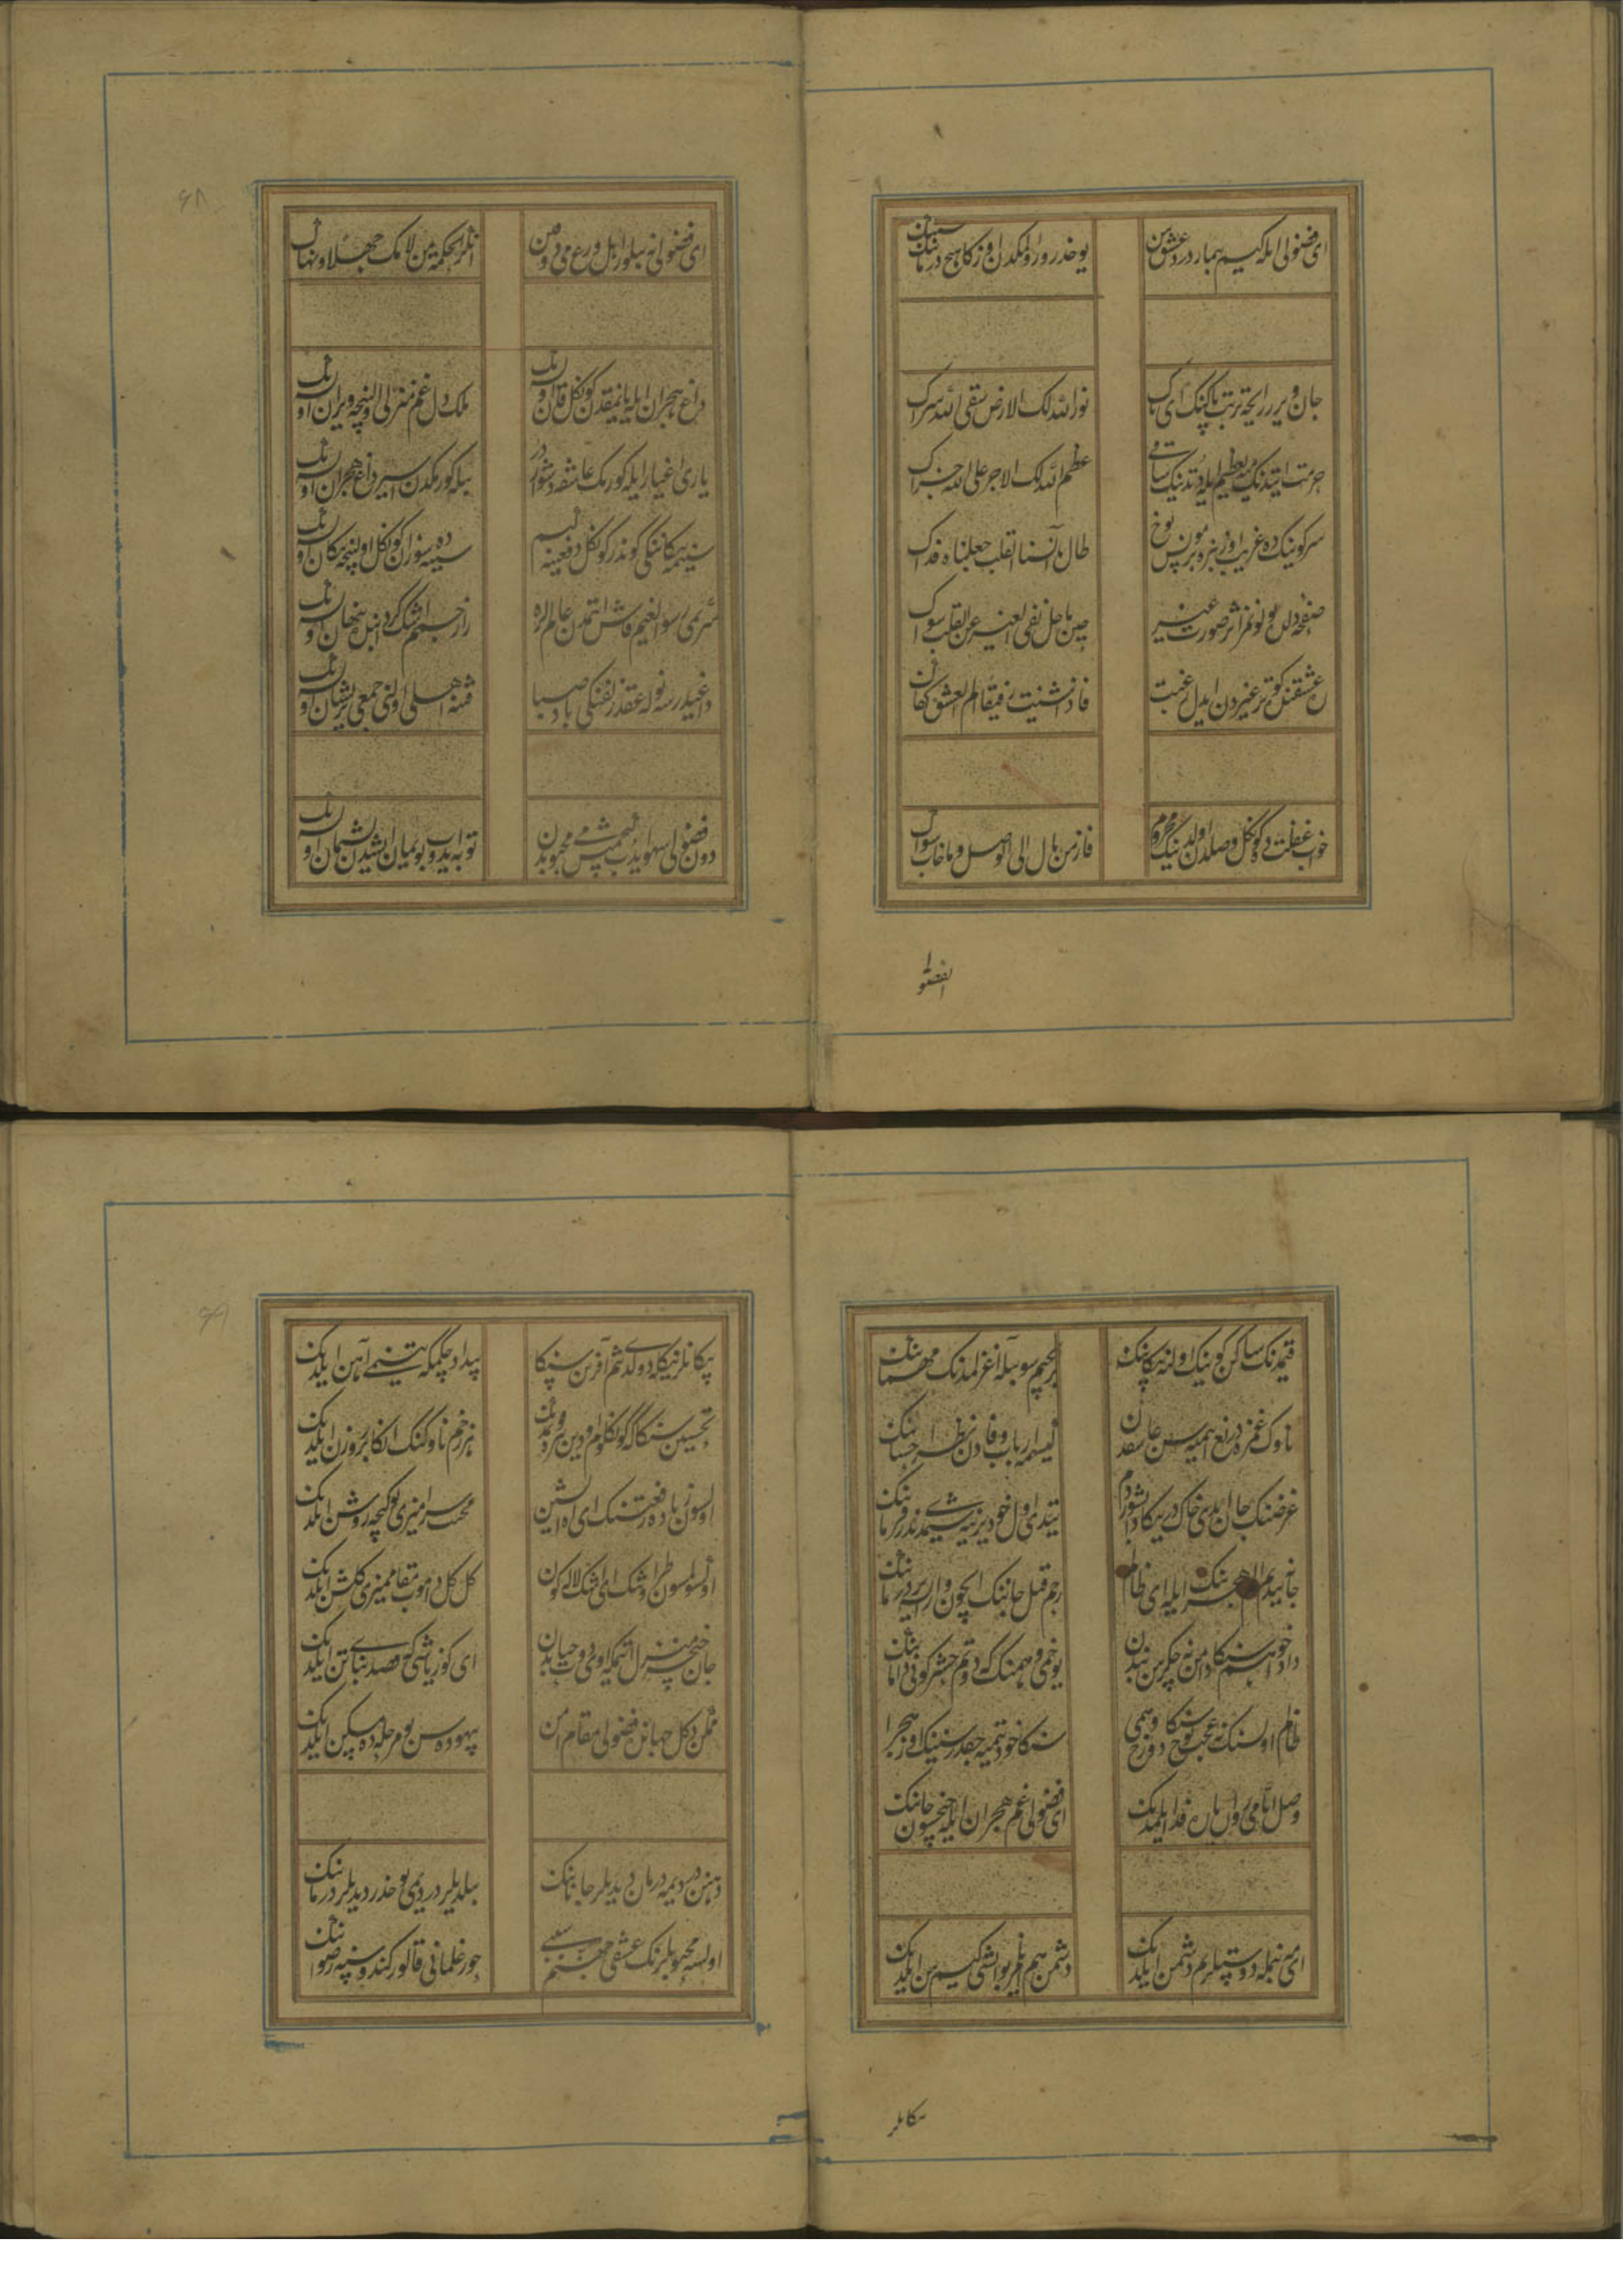 ای فضولی ایله کیم بیمار درد عشق سن یوخدر ور اولمکدن اوزکا هیچ درمانک سنک
جان ویرر رایحه تربت پاکینک ای پاک نور الله لک الارض سقی الله ثراک
حرمت ایتدنک تعظیم ایله عظم الله لک الاجر علی الله جزاک
سر کوینک ده غریب بر مونس یوخ طال ما آنسنا القلب جعلناه فداک
صفحه دلدن اثر صورت غیر حین ما حل نفی الغیر عن القلب سواک
غیردن ایدل رغبت فاذا شئت رفیقا الم العشق کفاک
خواب غفلت ده کونکل وصلدن اولدینک محروم فاز من مال الی الوصل و ما خاب سواک
۶۸
ای فضولی نه بیلور اهل ورع می ذوقن انکر الحکمة من لامک جهلا و نهاک
داغ هجران ایله یانمقدن کونکل قان اولدنک ملک دل غم منزلی اولنجه ویران اولدنک
یاری اغیار ایله کورمک عاشقه دشوار در بیله کورمکدن اسیر داغ هجران اولدنک
سینمه پیکاننکی کوندر کونکل دفعینه هم سینه سوزان ده کونکل اولنجه پیکان اولدنک
سرمی رسوالغیم فاش اتمدن عالملره راز چشمم اشک پنهان اولدنک
داغیدرسه نوله عقد زلفنکی باد صبا فتنه اهلی اولنی جمعی پریشان اولدنک
دون فضولی سهو ایدب می محبوبدن توبه ایدوب بو یمان ایشدن پشیمان اولدنک
قتمدنک ساکن کوینک اوله پیکاننک بر ایچم سو بیله اغرلمدنک مهماننک
ناوک غمزه دریغ ایتمه سن عاشقدن کیسمه ارباب وفادن نظر احساننک
غرضنک جان ایدی خاک در یتدی اول خود یرینه شیمدی ندر فرماننک
جانه یتدم الم هجرنک ایله ای ظالم رحم قیل جاننک ایچون وار ایسه درماننک
داد خواهم سنکا دامن نه چکرسن بندن یوخمی وهمنک که دوتم حشر کونی داماننک
ظالم اولسنک نه عجب یوخ سنکا وهمی دوزخ سنکا خود یتمیه جقدر سنینک اوز
وصل ایامی روان یاره فدا ایلمدنک ای فضولی غم هجران ایله چخسون جاننک
ای بنمله دوستلرم دشمن ایلدنک دشمن هم ایلمز بو ایشی کیم سن ایلدنک
پیکانلر
۶۹
پیکانلرنکله دولدی تنم آفرین سنکا بیداد چکمکه تنمی آهن ایلدنک
تحسین سنکا که کونکلوم اوین تیره قویمدنک هر زخم ناوکنک انکا بر روزن ایلدنک
اولسون زیاده رفعتنک ای اه اتشین محنت سرامزی بو کیجه روشن ایلدنک
اکسلمسون طراوتنک ای اشک لاله کون کل کل مقاممزی کلشن ایلدنک
جان چخسه منزل اتمکه ای کوز یاشی که قصد بنای تن ایلدنک
ممکن دکل جهانده فضولی مقام امن بیهوده سن بو مرحله ده مسکن ایلدنک
دهنن دردیمه درمان دیدیلر جاناننک بیلدیلر دردمی یوخدر دیدیلر درماننک
اولسه محبوبلرنک عشقی جهنم سببی حور غلمانی قالور کندوسینه رضواننک